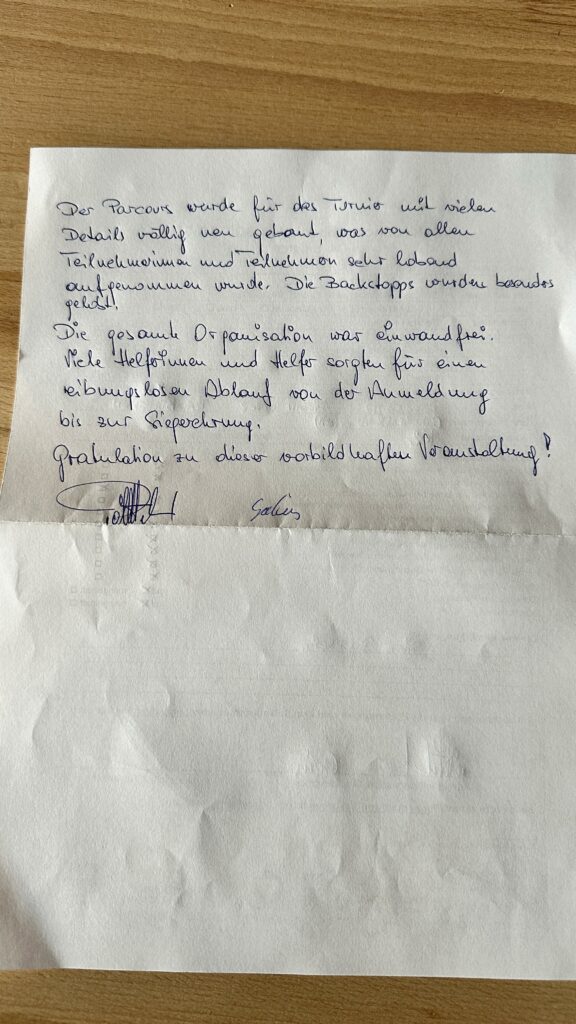 Der Parcours wurde für das Turnier mit vielen
Details völlig neu gebaut, was von allen
Teilnehmerinnen und Teilnehmern sehr lobend
aufgenommen wurde. Die Backstopps wurden besonders
gelobt.
Die gesamte Organisation war einwandfrei.
Viele Helferinnen und Helfer sorgten für einen
reibungslosen Ablauf von der Anmeldung
bis zur Siegerehrung.
Gratulation zu dieser vorbildhaften Veranstaltung!